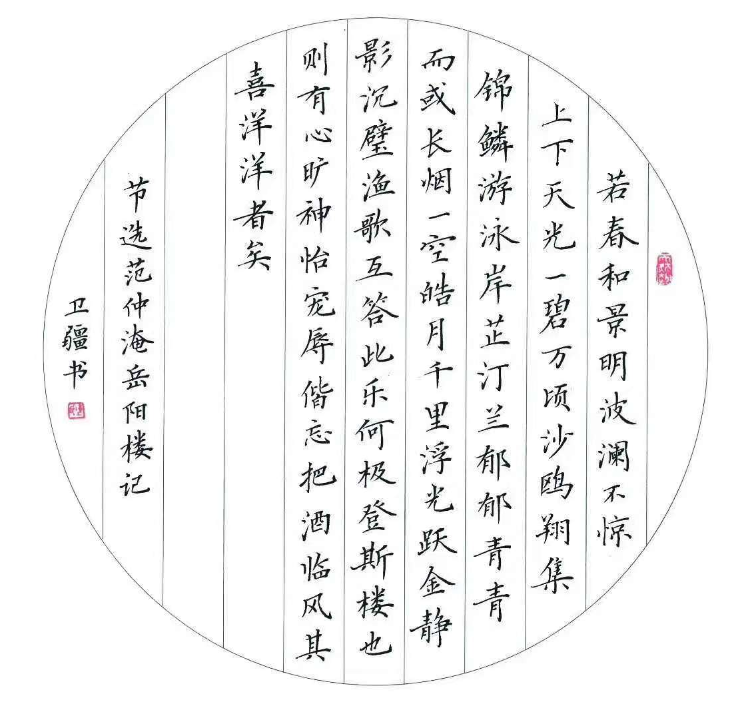 若春和景明波澜不惊
上下天光一碧万顷沙鸥翔集
锦鳞游泳岸芷汀兰郁郁青青
而或长烟一空皓月千里浮光跃金静
影沉璧渔歌互答此乐何极登斯楼也
则有心旷神怡宠辱偕忘把酒临风其
喜洋洋者矣
节选范仲淹岳阳楼记
卫疆书